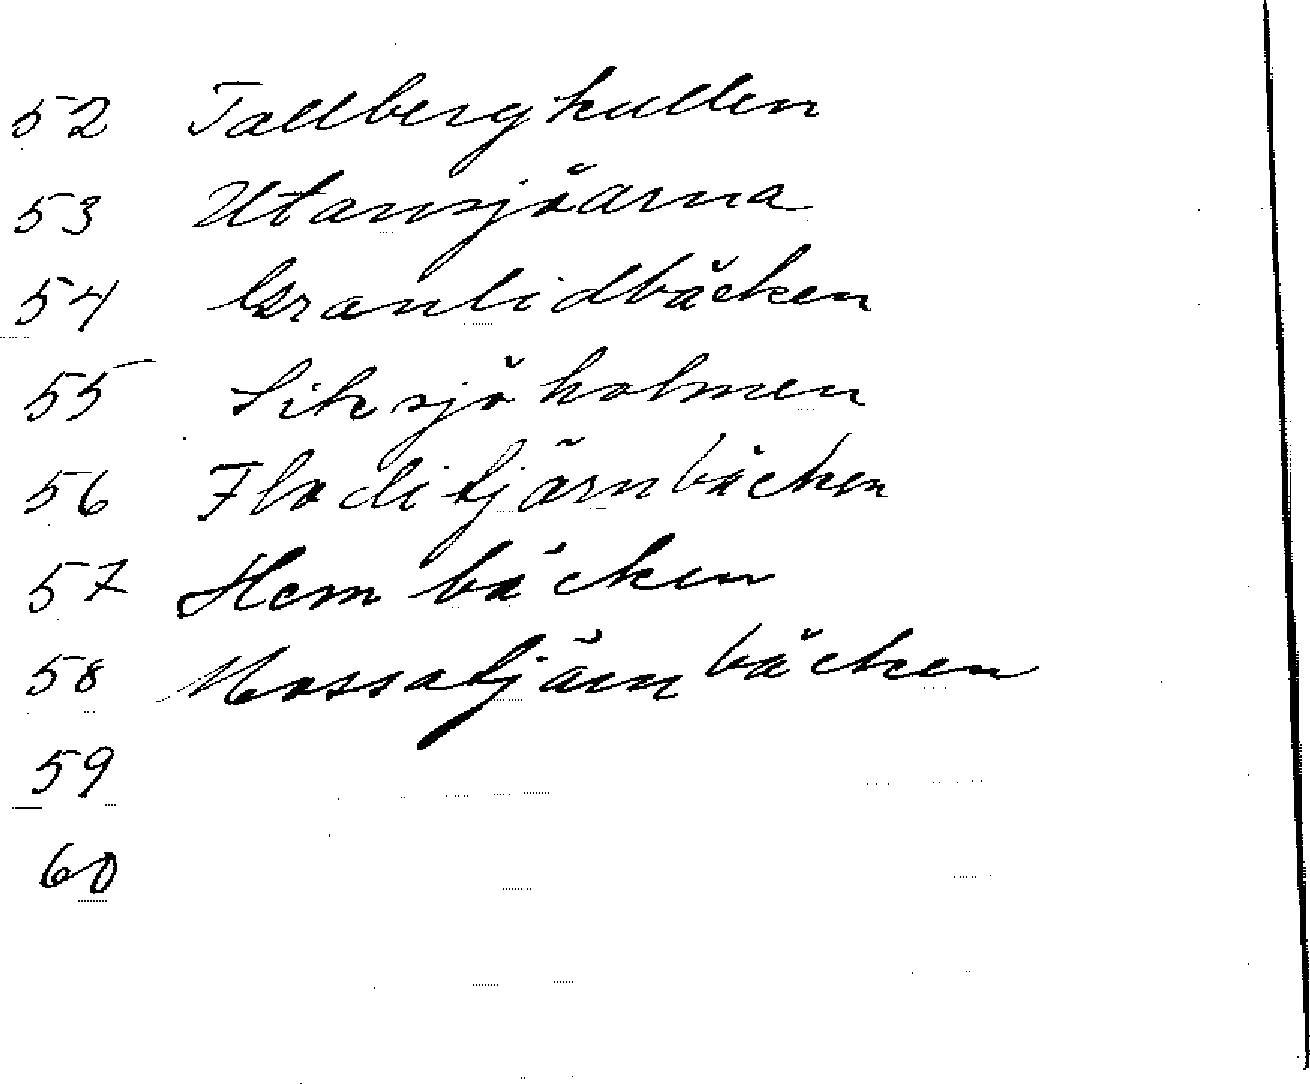 52 Tallbergkullen
53 Utansjöarna
54 Granlidbäcken
55 Siksjöholmen
56 Floditjärnbäcken
57 Hembäcken
58 Mossatjärnbäcken
59
60